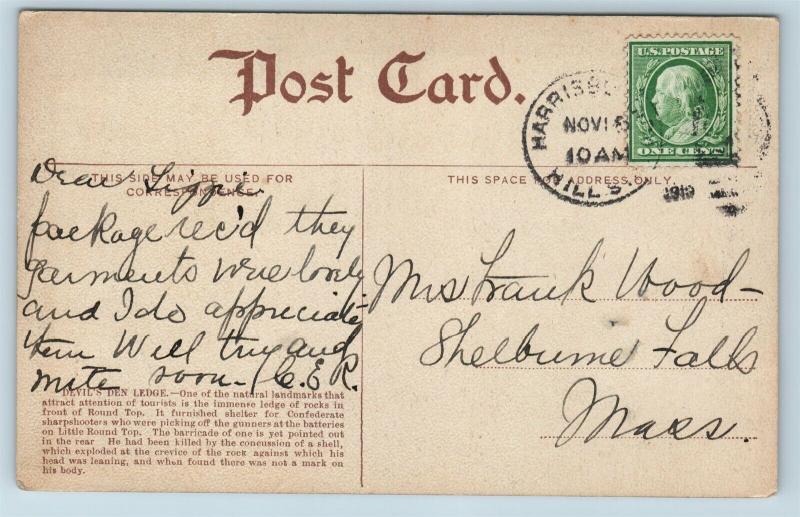 Post Card.
U.S. POSTAGE
ONE CENT
HARRISBURG
NOV 15
10 AM
HILL S.
1910
THIS SIDE MAY BE USED FOR
CORRESPONDENCE.
THIS SPACE FOR ADDRESS ONLY.
Dear Lizzie
package rec'd they
garments were lovely
and I do appreciate
them Will try and
write soon - C.E.R.
Mrs Frank Wood -
Shelburne Falls
Mass.
DEVIL'S DEN LEDGE.—One of the natural landmarks that
attract attention of tourists is the immense ledge of rocks in
front of Round Top. It furnished shelter for Confederate
sharpshooters who were picking off the gunners at the batteries
on Little Round Top. The barricade of one is yet pointed out
in the rear He had been killed by the concussion of a shell,
which exploded at the crevice of the rock against which his
head was leaning, and when found there was not a mark on
his body.